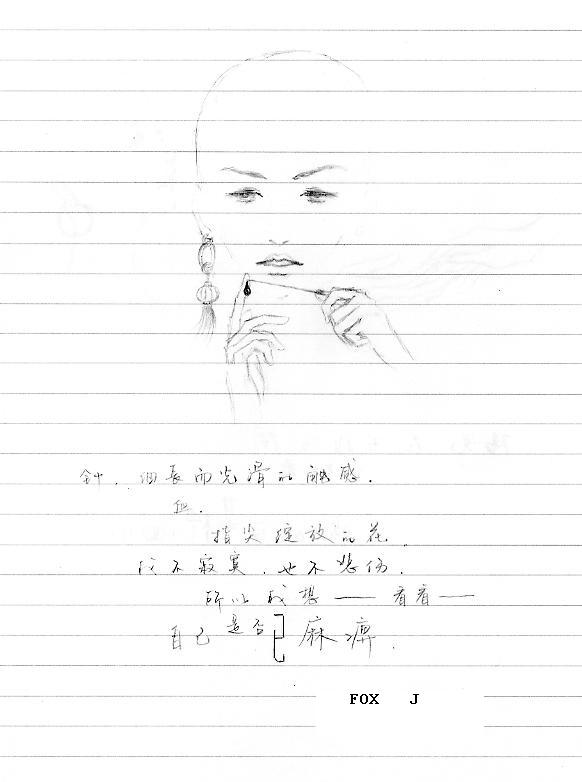 针．细长而光滑的触感．
血．
指尖绽放的花．
我不寂寞．也不悲伤．
所以我想——看看——
自己是否已麻痹．
FOX J